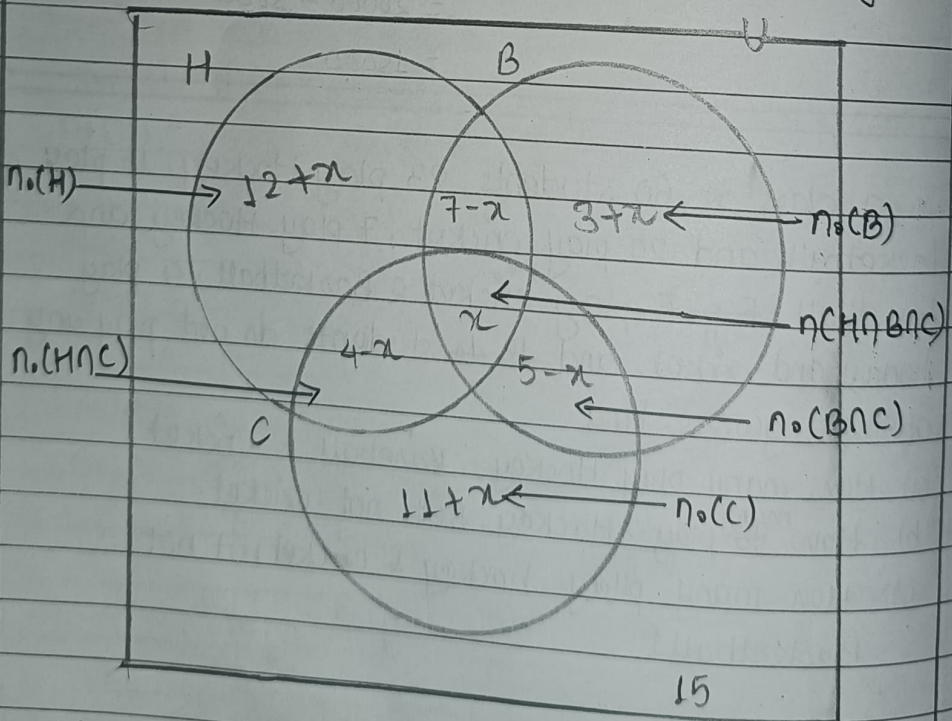 U
H
B
n₀(H)
12+x
7-x
3+x
n₀(B)
x
n(H∩B∩C)
n₀(H∩C)
4-x
5-x
n₀(B∩C)
C
11+x
n₀(C)
15